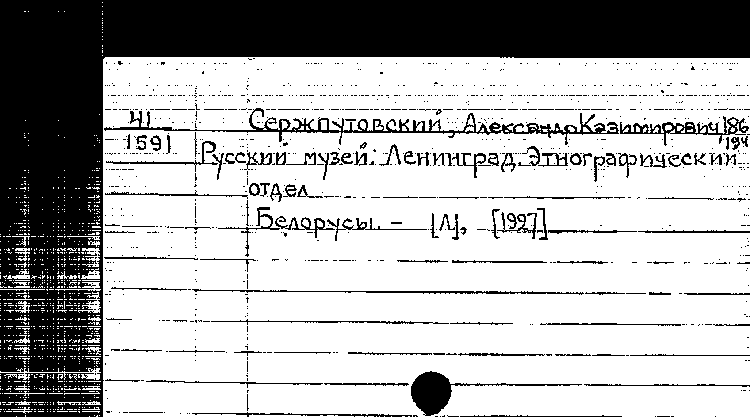 41
1591
Сержпутовский, Александр Казимирович 186
194
Русский музей. Ленинград. Этнографический
отдел
Белорусы. - [Л], [1927]